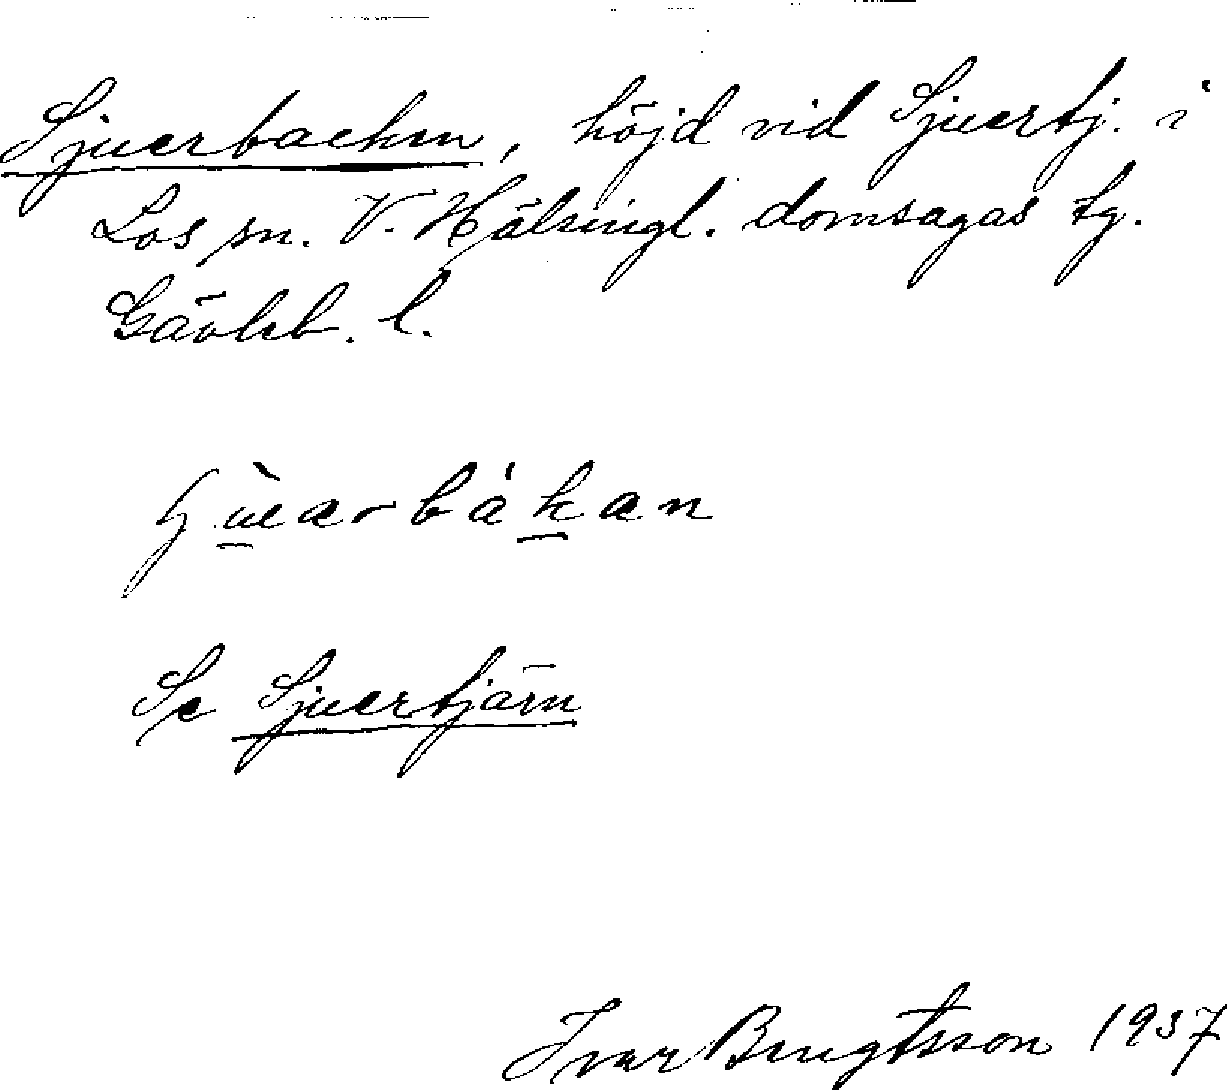 Sjuerbacken, höjd vid Sjuertj. i
Los sn. V. Hälsingl. domsagas tg.
Gävleb. l.
Se Sjuertjärn
Ivar Bengtsson 1937